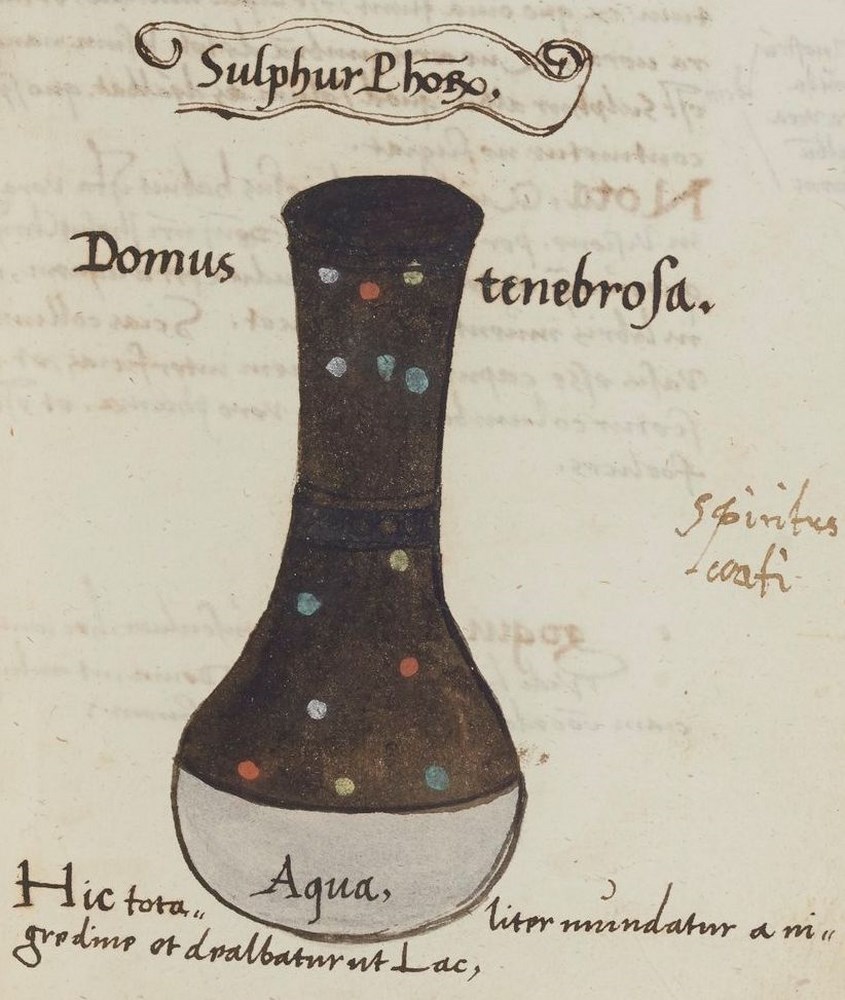 Sulphur Phōꝝ.
Domus tenebroſa.
spiritus
Hic tota„ liter mūndatur a ni„
gredine et dealbatur ut Lac,
Aqua,